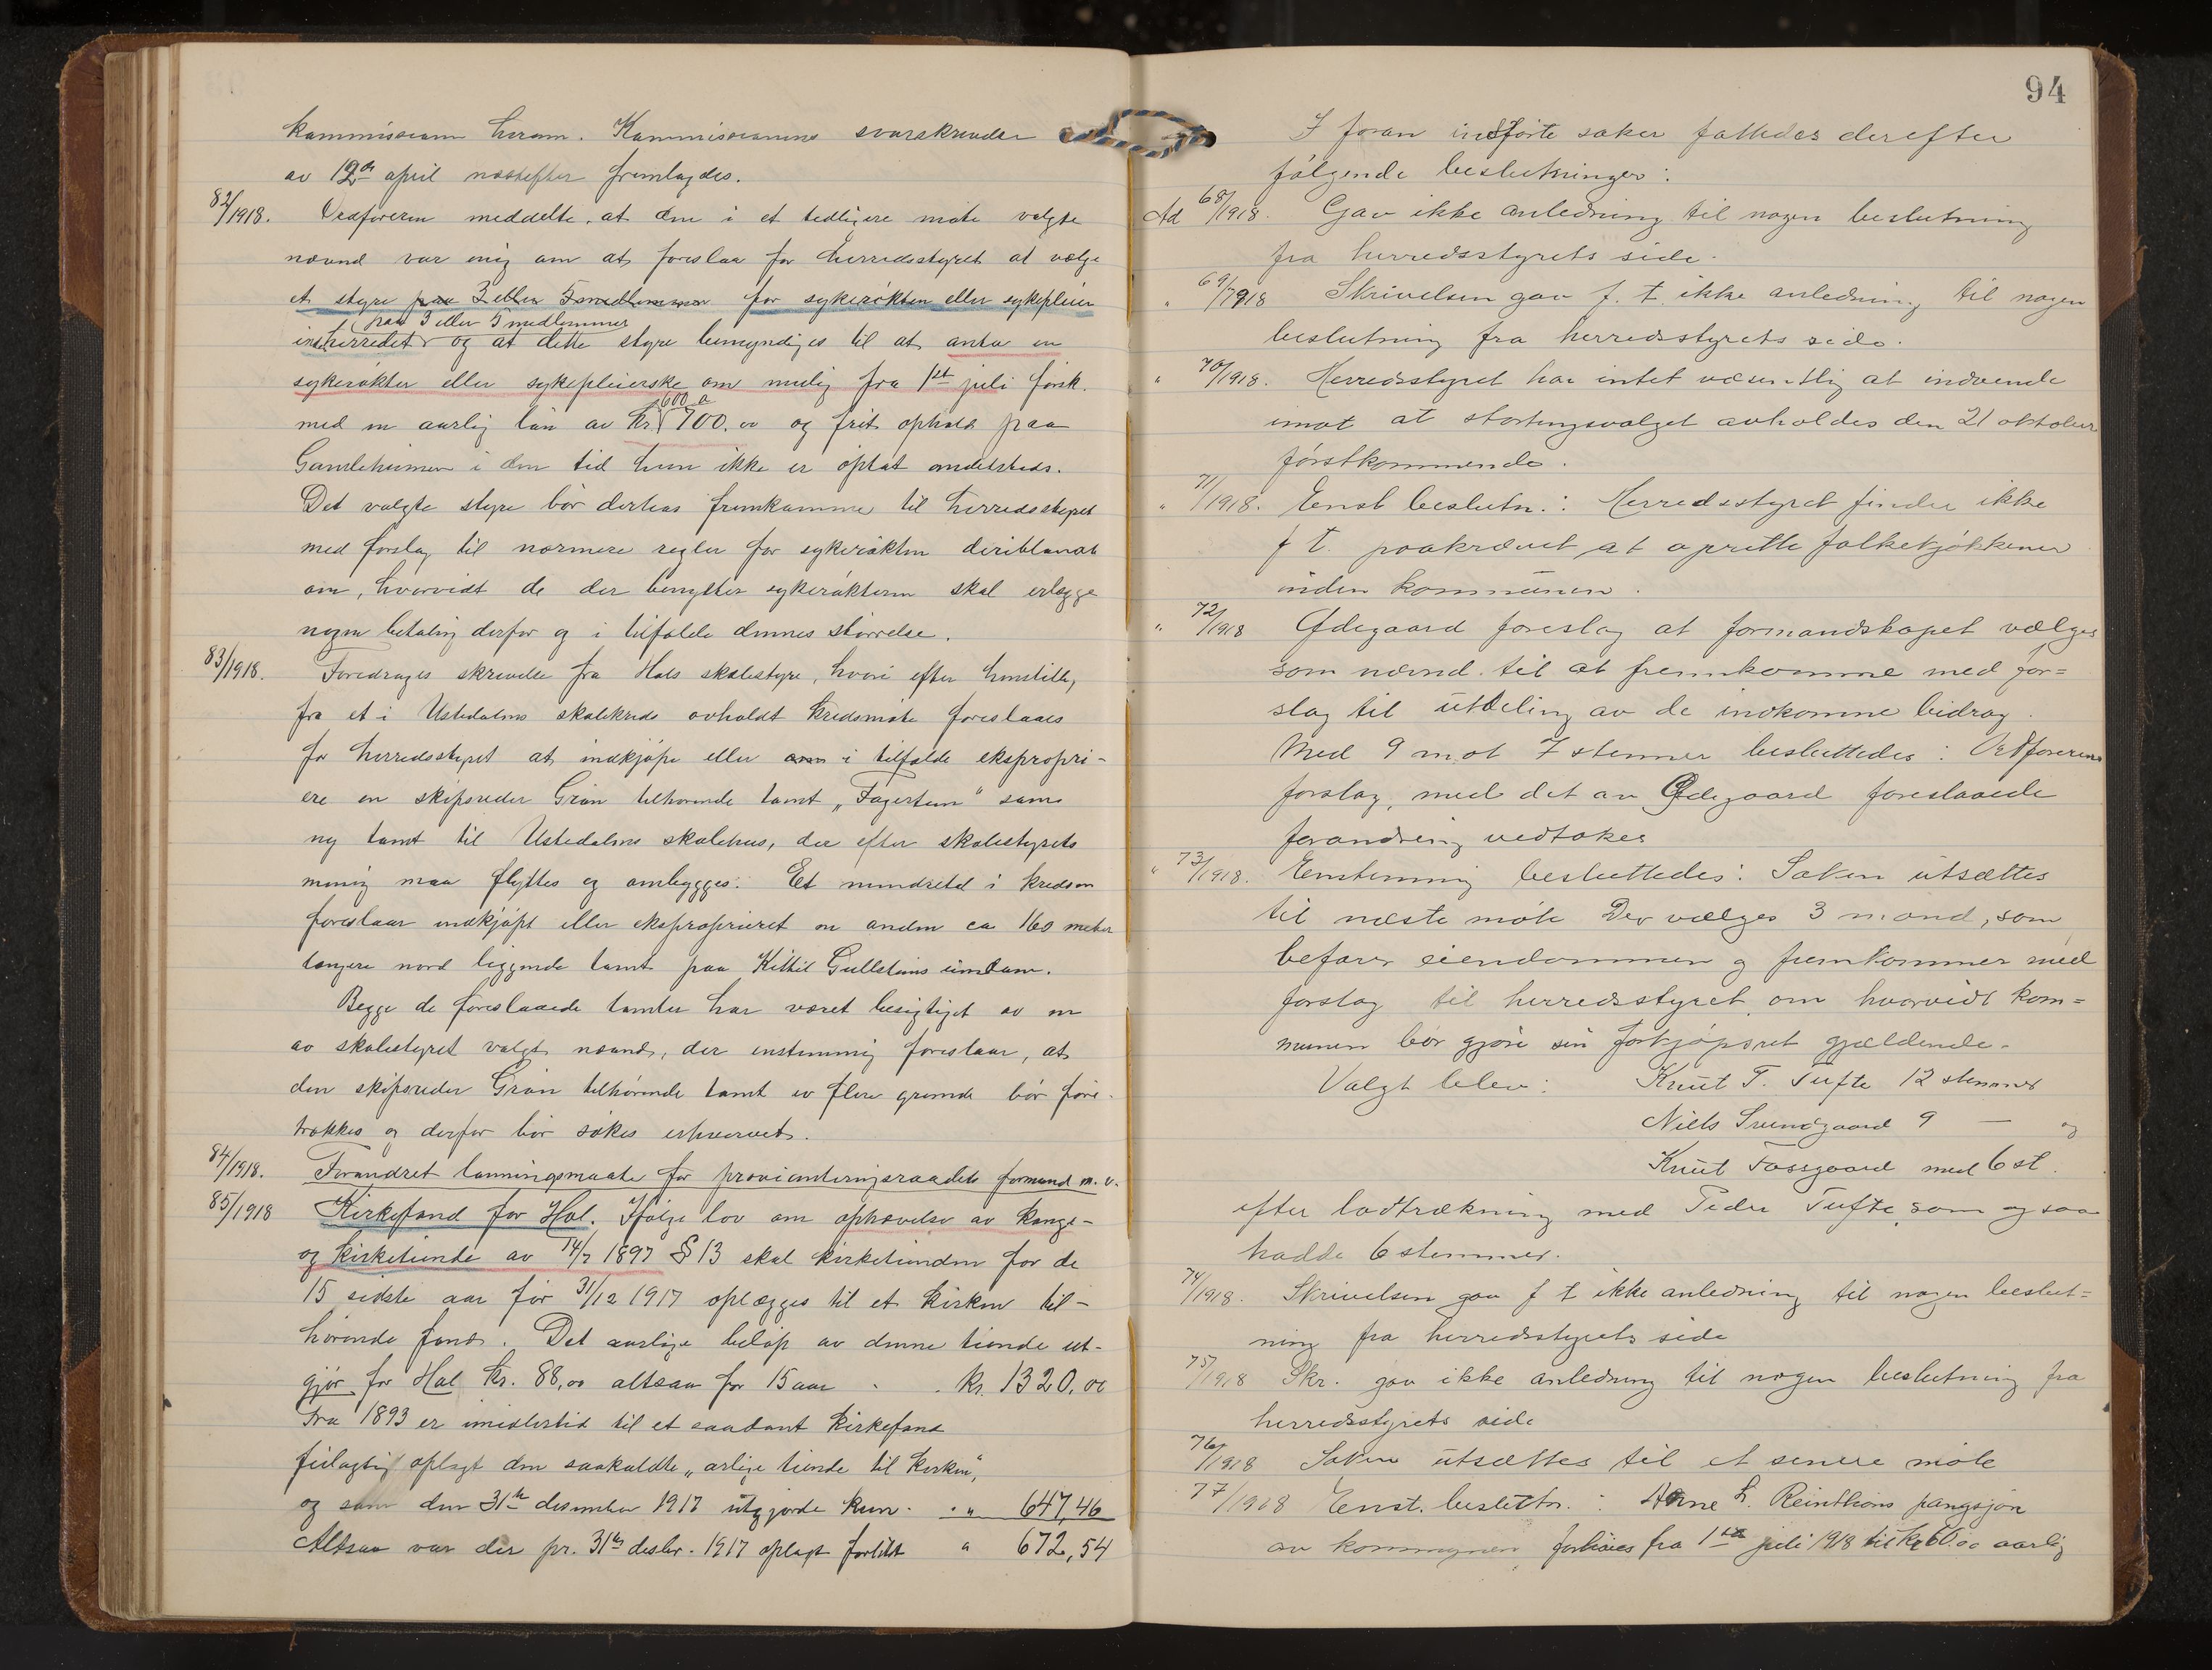 kommissionen herom. Kommissionens svarskrivelse
av 12te april næstefter fremlagdes.
82/1918. Ordføreren meddelte, at den i et tidligere møte valgte
nævnd var enig om at foreslaa for herredsstyret at vælge
et styre paa 3 eller 5 medlemmer for sykerøkten eller sykepleien
paa 3 eller 5 medlemmer
i herredet og at dette styre bemyndiges til at anta en
sykerøkter eller sykepleierske om mulig fra 1ste juli førstk.
600 a
med en aarlig løn av kr. 700.00 og frit ophold paa
Gamlehjemmet i den tid hun ikke er optat andetsteds.
Det valgte styre bør derhos fremkomme til herredsstyret
med forslag til nærmere regler for sykerøkten deriblandt
om, hvorvidt de der benytter sykerøkteren skal erlægge
nogen betaling derfor og i tilfælde dennes størrelse.
83/1918. Foredrages skrivelse fra Hols skolestyre, hvori efter henstilling
fra et i Ustedalens skolekreds avholdt kredsmøte foreslaaes
for herredsstyret at indkjøpe eller i tilfælde ekspropri-
ere en skipsreder Grøn tilhørende tomt „Fagertun" som
ny tomt til Ustedalens skolehus, der efter skolestyrets
mening maa flyttes og ombygges. Et mindretal i kredsen
foreslaar indkjøpt eller ekspropriert en anden ca 160 meter
længere nord liggende tomt paa Kittil Gullsteins eiendom.
Begge de foreslaaede tomter har været besigtiget av en
av skolestyret valgt nævnd, der enstemmig foreslaar, at
den skipsreder Grøn tilhørende tomt av flere grunde bør fore-
trækkes og derfor bør søkes erhvervet.
84/1918. Forandret lønningsmaate for provianteringsraadets formand m. v.
85/1918 Kirkefond for Hol. Ifølge lov om ophævelse av konge-
og kirketiende av 14/7 1897 § 13 skal kirketienden for de
15 sidste aar før 31/12 1917 oplægges til et kirken til-
hørende fond. Det aarlige beløp av denne tiende ut-
gjør for Hol kr. 88,00 altsaa for 15 aar - . kr. 1320,00
Fra 1893 er imidlertid til et saadant kirkefond
feilagtig oplagt den saakaldte „arlige tiende til kirken",
og som den 31te desember 1917 utgjorde kun . . „ 647,46
Altsaa var der pr. 31te desbr. 1917 oplagt forlitet „ 672,54
94
I foran indførte saker fattedes derefter
følgende beslutninger:
Ad 68/1918. Gav ikke anledning til nogen beslutning
fra herredsstyrets side.
„ 69/1918 Skrivelsen gav f. t. ikke anledning til nogen
beslutning fra herredsstyrets side.
„ 70/1918. Herredsstyret har intet væsentlig at indvende
imot at stortingsvalget avholdes den 21 oktober
førstkommende.
„ 71/1918. Enst beslutn.: Herredsstyret finder ikke
f t. paakrævet at oprette folkekjøkkener
inden kommunen.
„ 72/1918 Ødegaard foreslog at formandskapet vælges
som nævnd til at fremkomme med for=
slag til utdeling av de indkomne bidrag.
Med 9 mot 7 stemmer besluttedes: Ordførerens
forslag, med det av Ødegaard foreslaaede
forandring vedtokes
„ 73/1918. Enstemmig besluttedes: Saken utsættes
til næste møte Der vælges 3 mænd, som
befarer eiendommen og fremkommer med
forslag til herredsstyret, om hvorvidt kom=
munen bør gjøre sin forkjøpsret gjældende.
Valgt blev: Knut T. Tufte 12 stemmer
Niels Svendgaard 9 — og
Knut Fossgaard med 6 st.
efter lodtrækning med Peder Tufte, som ogsaa
hadde 6 stemmer.
74/1918. Skrivelsen gav f t ikke anledning til nogen beslut=
ning fra herredsstyrets side
75/1918 Skr. gav ikke anledning til nogen beslutning fra
herredsstyrets side
76/1918 Saken utsættes til et senere møte
77/1918 Enst. beslutn.: Arne L. Reintons pangsjon
av kommunen forhøies fra 1ste juli 1918 til kr 60.00 aarlig